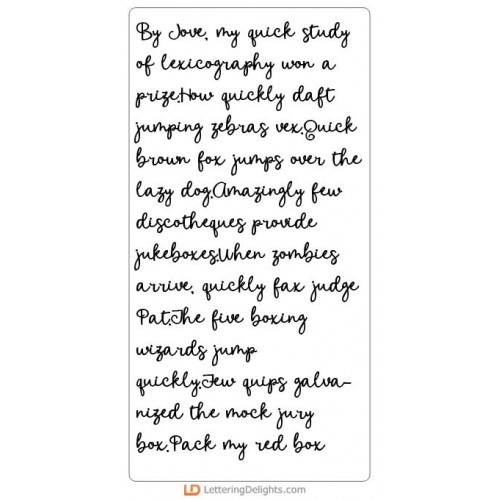 By Jove, my quick study
of lexicography won a
prize.How quickly daft
jumping zebras vex.Quick
brown fox jumps over the
lazy dog.Amazingly few
discotheques provide
jukeboxes.When zombies
arrive, quickly fax judge
Pat.The five boxing
wizards jump
quickly.Few quips galva-
nized the mock jury
box.Pack my red box
LD LetteringDelights.com